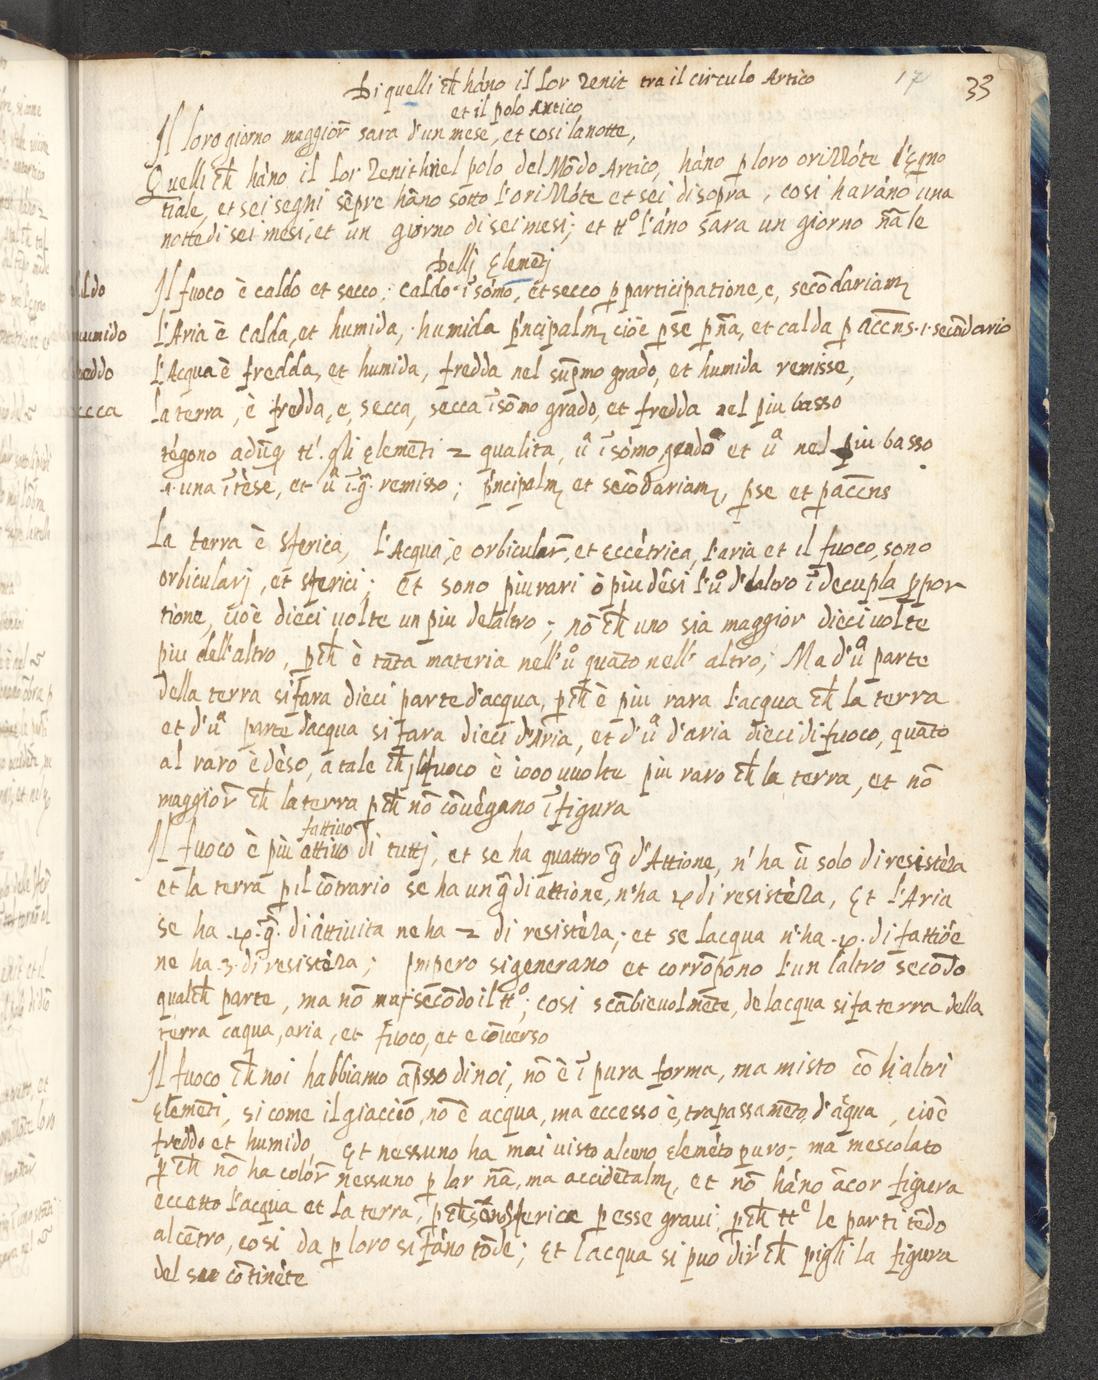 17 33
Di quelli ch̄ hāno il lor Zenit tra il circulo Artico
et il polo Artico
Il loro giorno maggior̄ sara d'un mese, et cosi la notte,
Quelli ch̄ hāno il lor Zenith nel polo del Mōdo Artico, hāno p loro oriZZōte l'Eqno
tiale, et sei segni sēpre hāno sotto l'oriZZōte et sei di sopra, cosi harāno una
notte di sei mesi, et un giorno di sei mesi; et ttº l'āno sara un giorno nāle
Delli Elemēti
Il fuoco è caldo et secco; caldo ī sōmo, et secco p participatione, e, secōdariam̄
L'Aria è calda, et humida, humida p̄ncipalm̄ cioè p se p nā, et calda p accn̄s ·i· secōdario
L'Acqua è fredda, et humida, fredda nel sup̄mo grado, et humida remisse,
La terra, è fredda, e, secca, secca ī sōmo grado, et fredda nel piu basso
tēgono adūq tt'. gli Elemēti 2 qualita, ūª ī sōmo grado et ūª nel piu basso
·i· una ītēse, et ūª ī·g̃· remisso; p̄ncipalm̄ et secōdariam̄, p se et p accn̄s
La terra è sferica, l'Acqua, è orbicular̄, et eccētrica, l'aria et il fuoco, sono
orbicularj, et sferici; et sono piu rari ò piu dēsi l'ūº d'laltro ī decupla ppor
tione, cioè dieci volte un piu delaltro; nō ch̄ uno sia maggior dieci uolte
piu dell'altro, pch̄ è tāta materia nell'ūº quāto nell' altro; Ma d'ūª parte
della terra si fara dieci parte d'acqua, pch̄ è piu rara l'acqua ch̄ la terra
et d'ūª parte d'acqua si fara dieci d'Aria, et d'ūª d'aria dieci di fuoco, quāto
al raro è dēso, a tale ch̄ il fuoco è 1000 uuolte piu raro ch̄ la terra, et nō
maggior̄ ch̄ la terra pch̄ nō cōuēgano ī figura
fattiuo
Il fuoco è piu attiuo di tuttj, et se ha quattro g̃ d'Attione, n'ha ū solo di resistēza
et la terra p il cōtrario se ha un g̃ di attione, n'ha 4 di resistēza, Et l'Aria
se ha ·4·g̃· di attiuita ne ha 2 di resistēza; et se lacqua n'ha ·4· di fattiōe
ne ha ·3· di resistēza; Impero si generano et corrōpono l'un l'altro secōdo
qualch̄ parte, ma nō mai secōdo il ttº; cosi scābieuolmēte, de lacqua si fa terra della
terra caqua, aria, et fuoco, et e cōuerso
Il fuoco ch̄ noi habbiamo āpsso di noi, nō è ī pura forma, ma misto cō li altri
Elemēti, si come il giaccio, nō è acqua, ma eccesso è, trapassamēto, d'aqua, cioè
freddo et humido, Et nessuno ha mai uisto alcuno Elemēto puro; ma mescolato
p ch̄ nō ha color̄ nessuno p lar nā, ma accidētalm̄, et nō hāno ācor figura
eccetto l'acqua et la terra, pch̄ sono sferica p esse graui, pch̄ ttᵉ le parti tēdo
al cētro, cosi da p loro si fāno tōde; Et l'acqua si puo dir̄ ch̄ pigli la figura
del suo cōtinēte